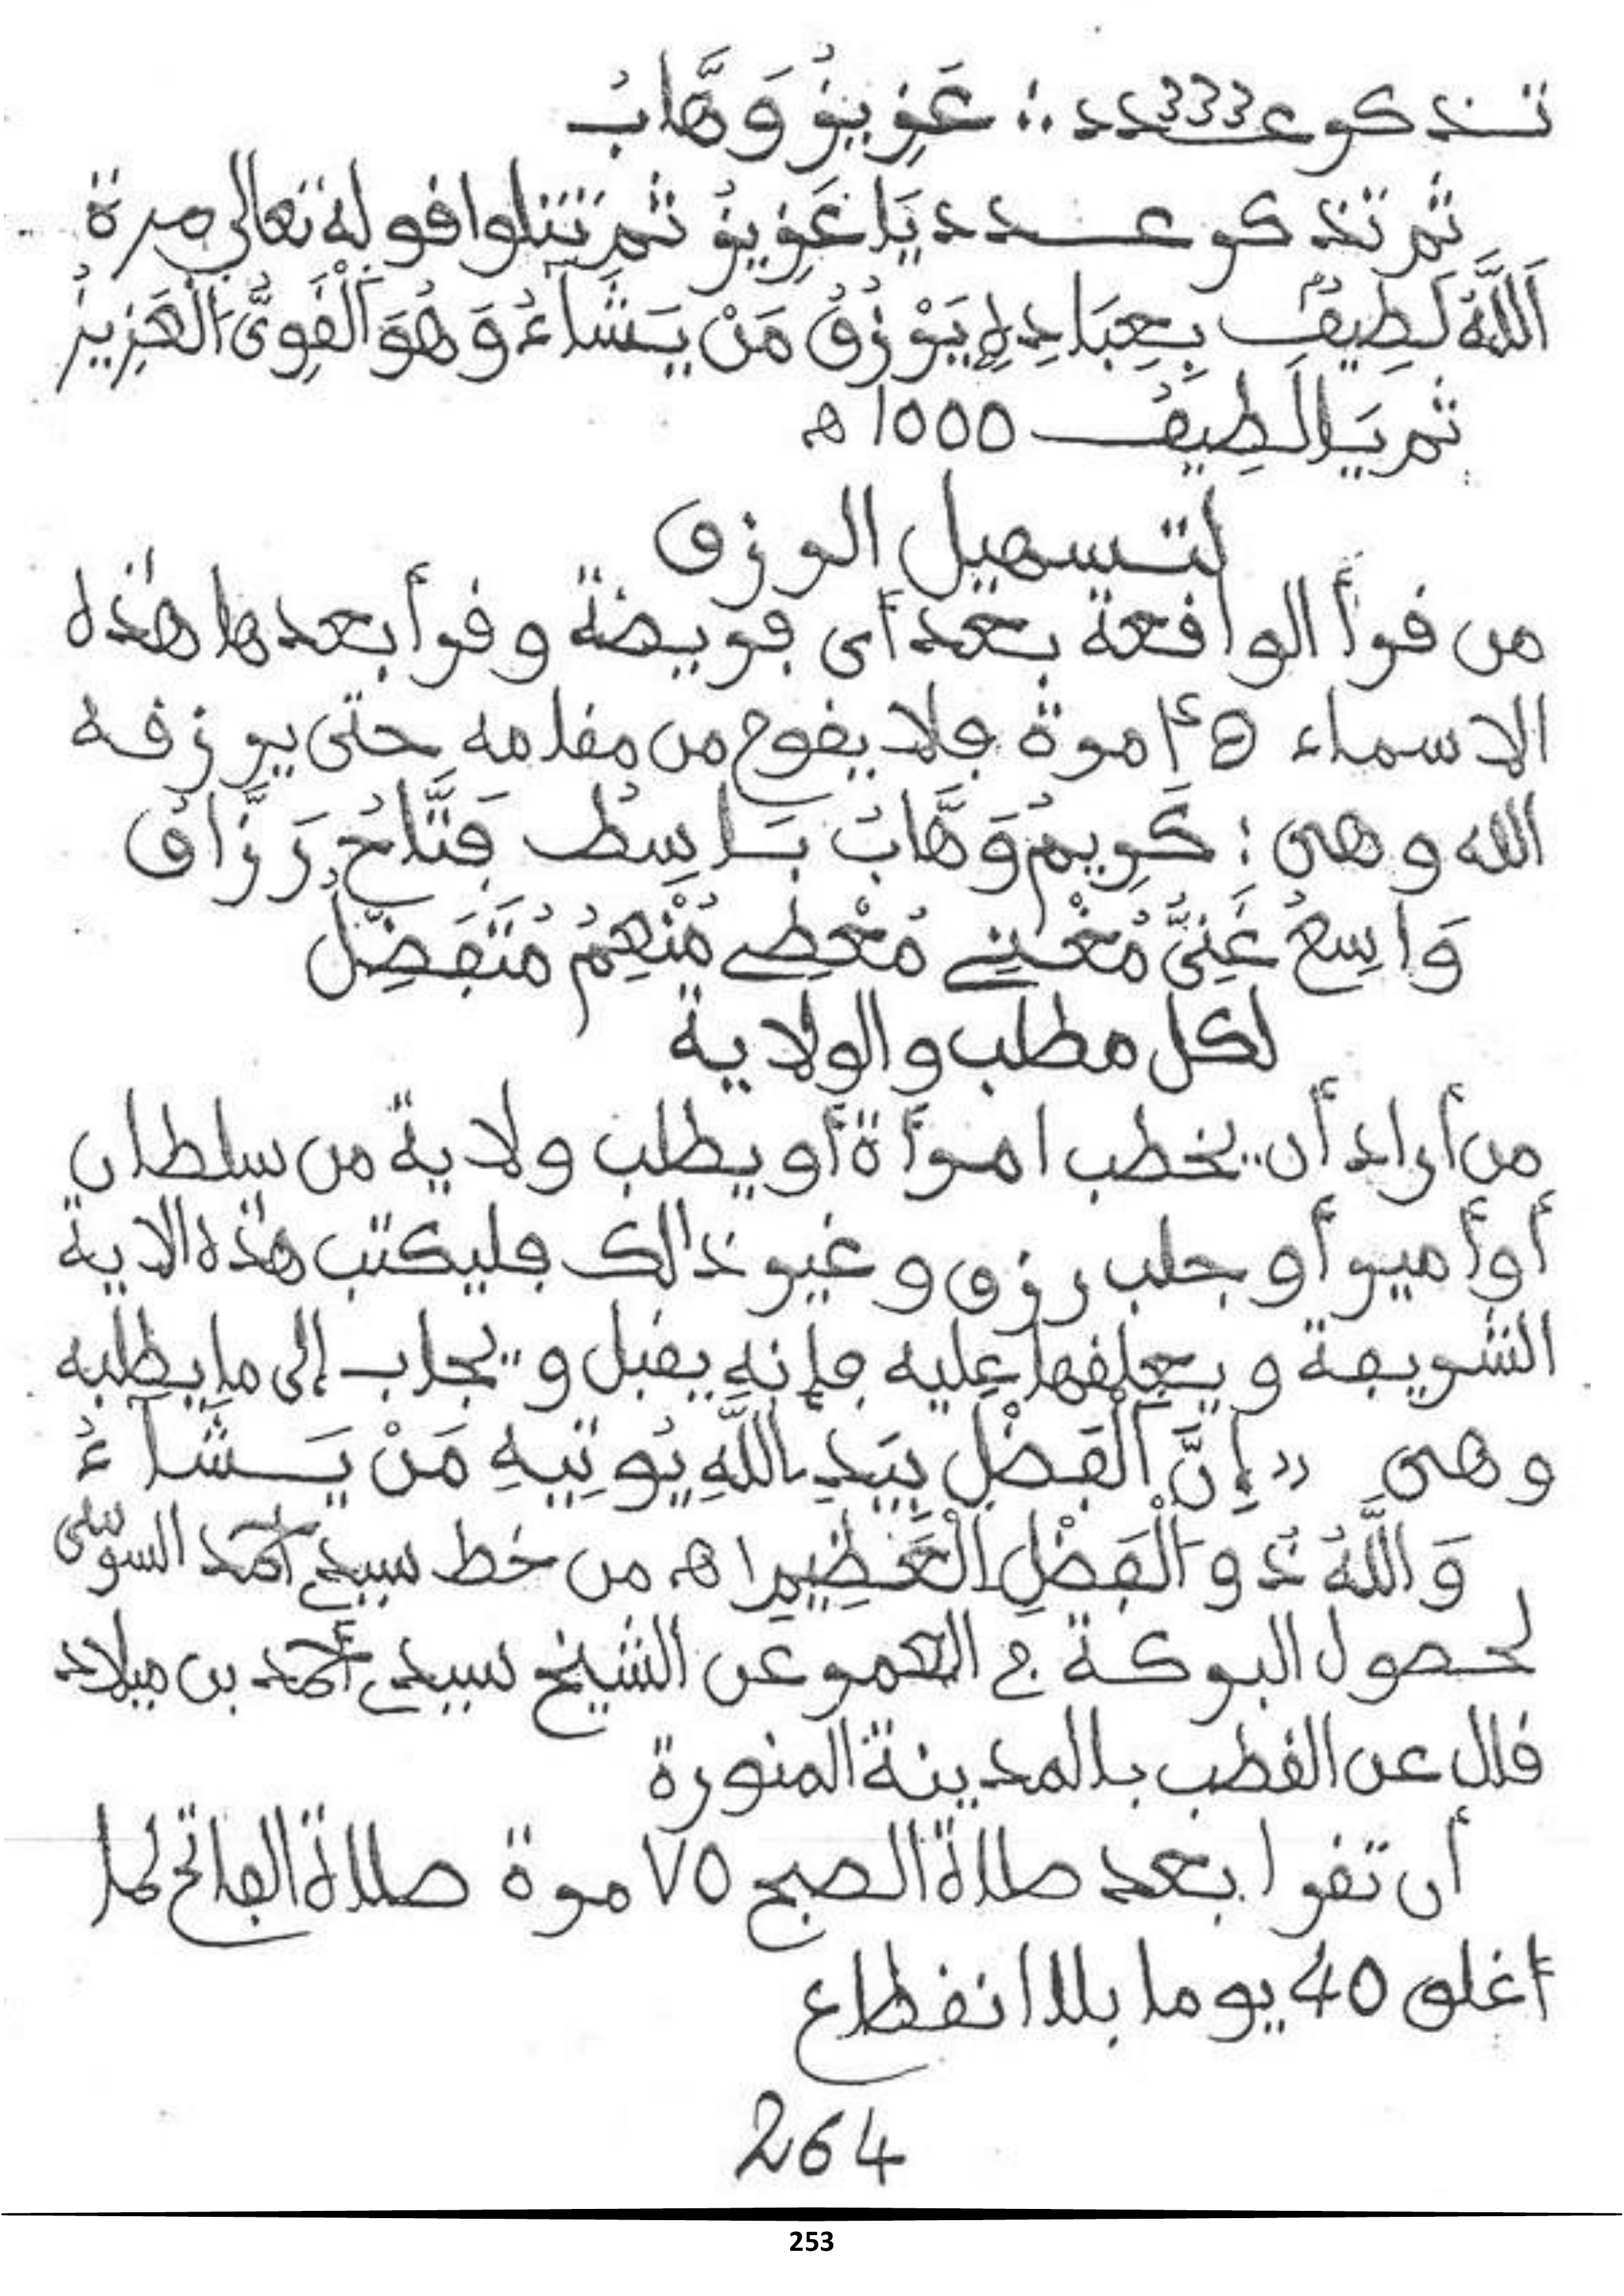 تذكر عدد 333 : عَزِيزُ وَهَّابُ
ثم تذكر عدد يَا عَزِيزُ ثم تتلوا قوله تعالى مرة
اَللَّهُ لَطِيفُ بِعِبَادِهِ يَرْزُقُ مَنْ يَشَاءُ وَهُوَ اَلْقَوِيُّ اَلْعَزِيزُ
ثم يَا لَطِيفُ 1000 ه
لتسهيل الرزق
من قرأ الواقعة بعد أى فريضة وقرأ بعدها هذه
الاسماء مرة فلا يقوم من مقامه حتى يرزقه
الله وهى : كَرِيمُ وَهَّابُ بَاسِطُ فَتَّاحُ رَزَّاقُ
وَاسِعُ غَنِىُّ مُغْنِے مُعْطِے مُنْعِمُ مُتَفَضِّلُ
لكل مطلب والولاية
من أراد أن يخطب امرأة أو يطلب ولاية من سلطان
أو أمير أو جلب رزق و غير ذالك فليكتب هذه الاية
الشريفة و يعلقها عليه فإنه يقبل و يجاب إلى ما يطلبه
وهى « إِنَّ اَلْفَضْلَ بِيَدِ اِللَّهِ يُوتِيهِ مَنْ يَشَآءُ
وَاللَّهُ ذُو اَلْفَضْلِ اِلْعَظِيمِ اه من خط سيدي أحمد السوسى
لحصول البركة في العمر عن الشيخ سيدي أحمد بن ميلاد
قال عن القطب بالمدينة المنورة
أن تقرا بعد صلاة الصبح 75 مرة صلاة الفاتح لما
أغلق 40 يوما بلا انقطاع
264
253